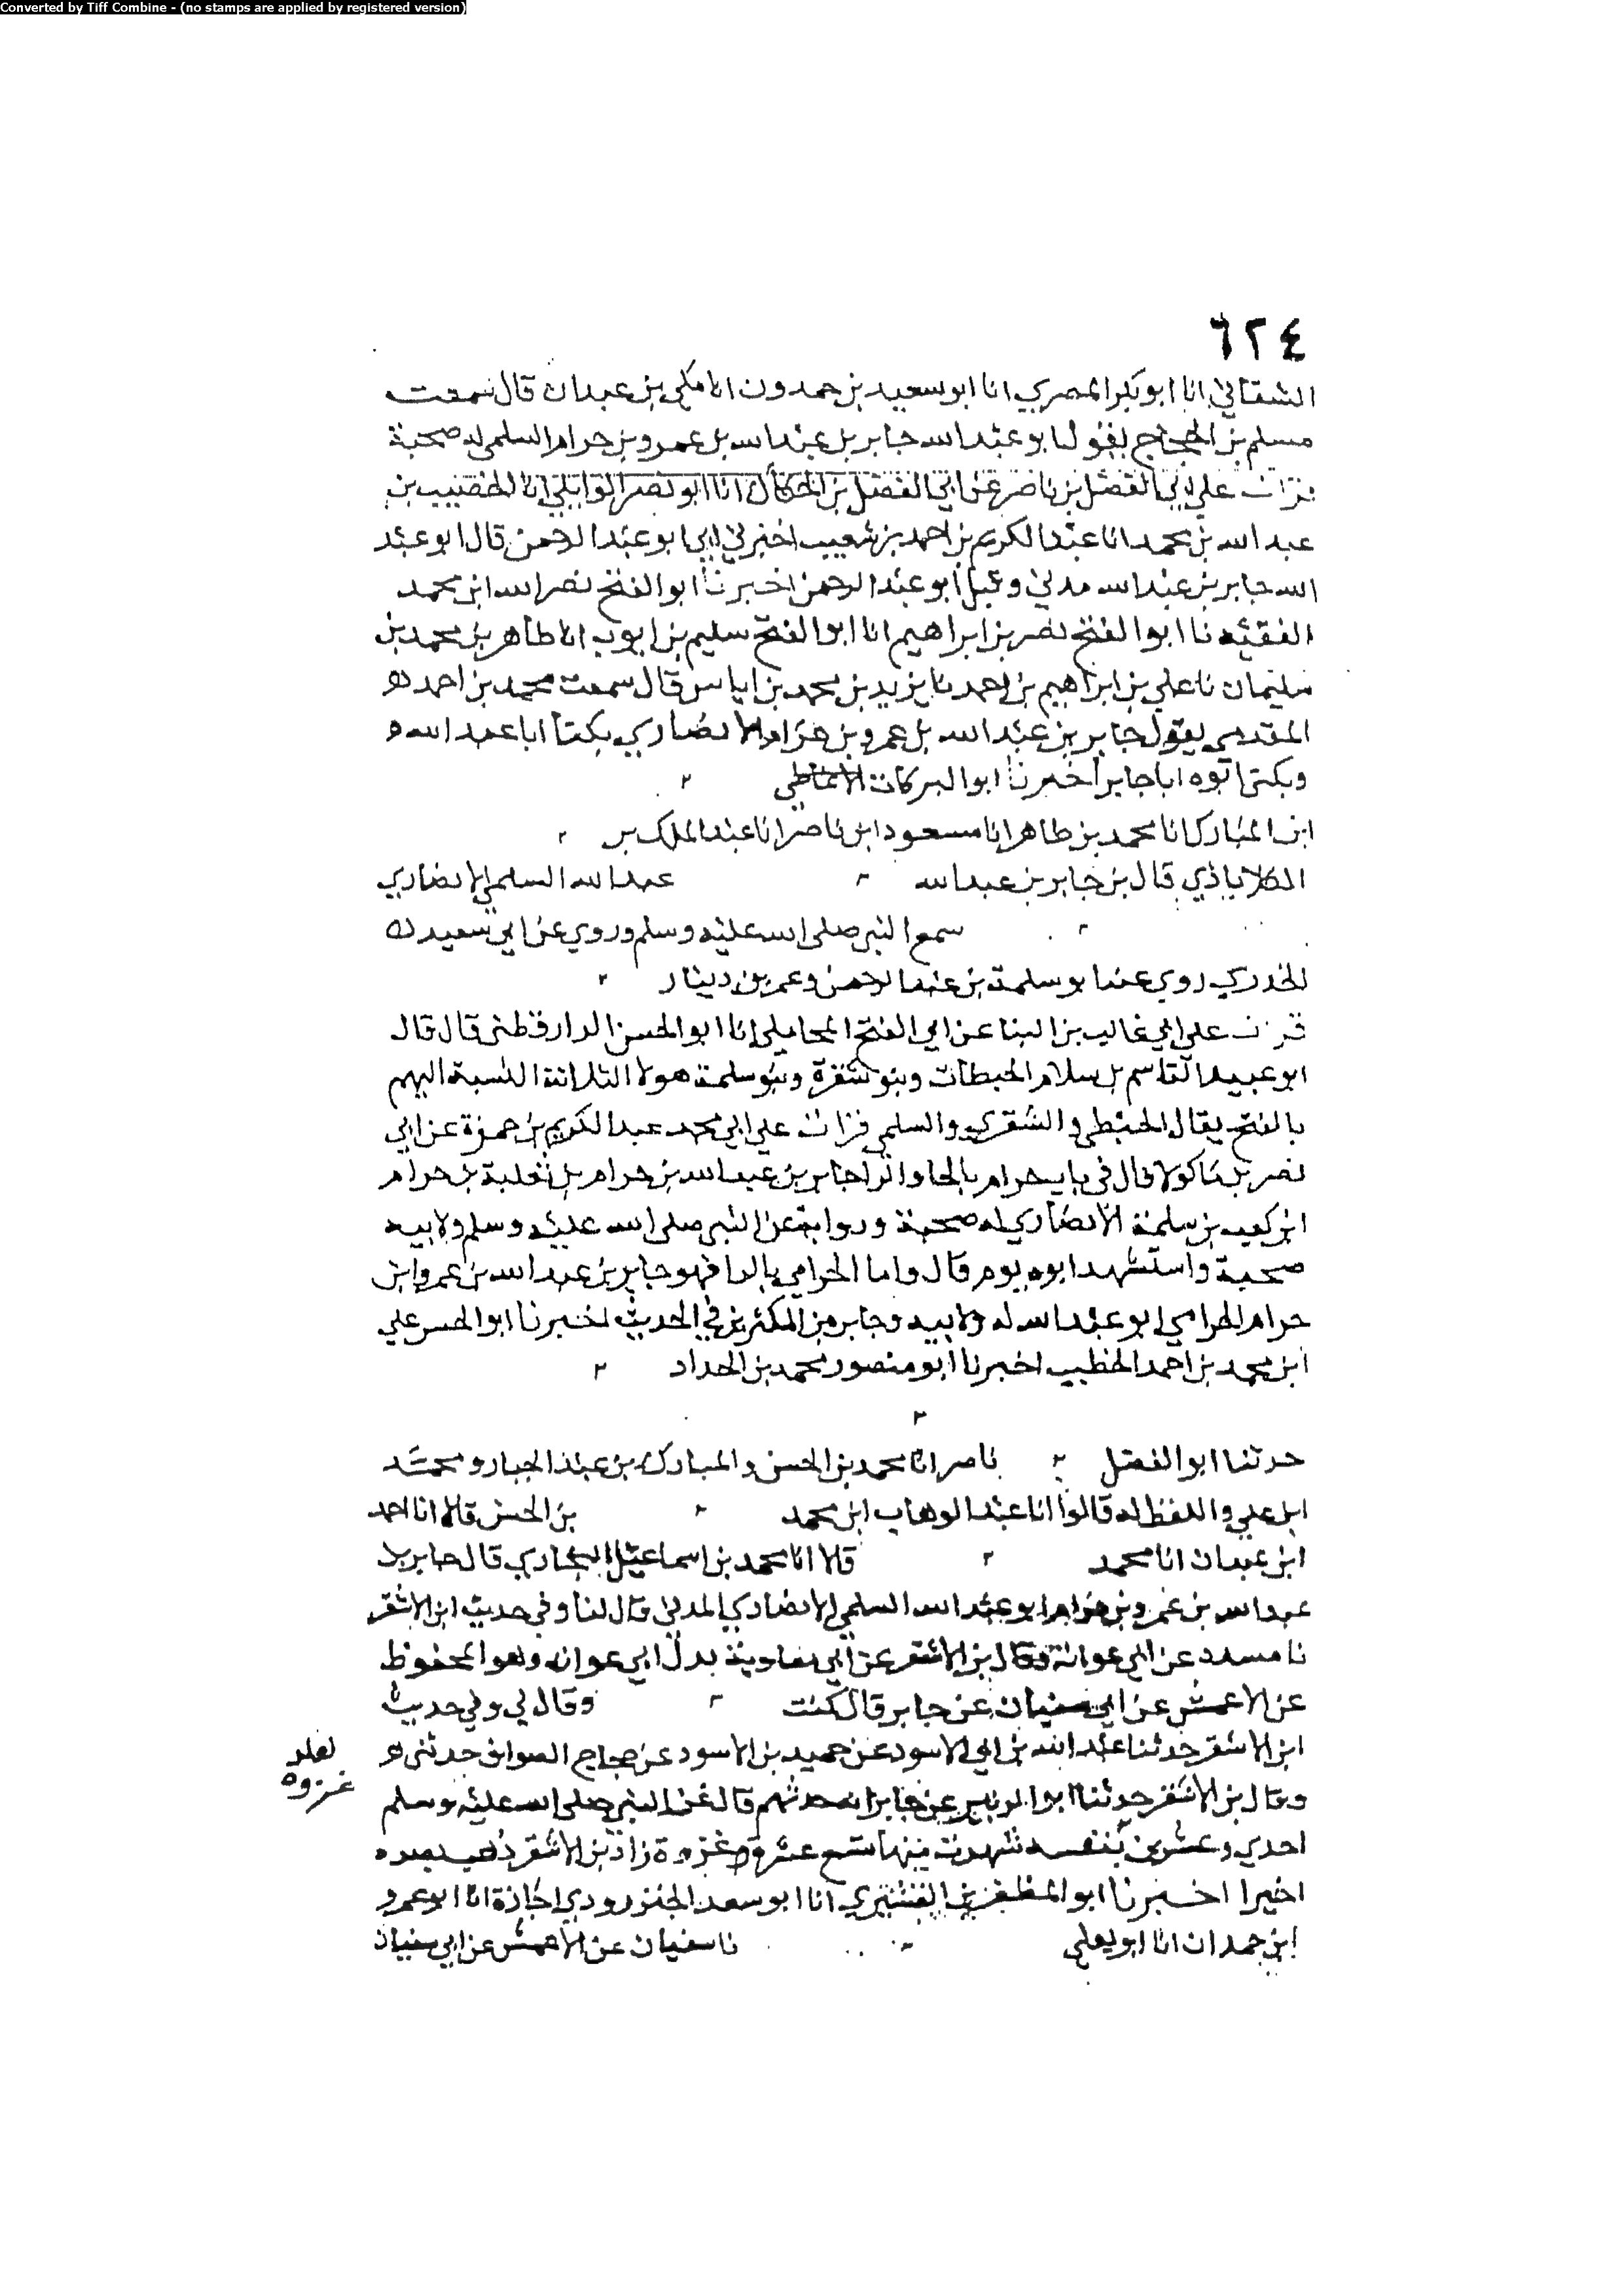 Converted by Tiff Combine - (no stamps are applied by registered version)
٦٢٤
الشقاني انا ابو بكر المصري انا ابو سعيد بن حمدون انا مكي بن عبدان قال سمعت
مسلم بن الحجاج يقول ابو عبد الله جابر بن عبد الله بن عمرو بن حرام السلمي له صحبة
قرات على ابي الفضل بن ناصر عن ابي الفضل بن الحكاك انا ابو نصر الوايلي انا الخصيب بن
عبد الله بن محمد انا عبد الكريم بن احمد بن شعيب اخبرني ابي ابو عبد الرحمن قال ابو عبد
الله جابر بن عبد الله مدني وقيل ابو عبد الرحمن اخبرنا ابو الفتح نصر الله ابن محمد
الفقيه نا ابو الفتح نصر بن ابراهيم انا ابو الفتح سليم بن ايوب انا طاهر بن محمد بن
سليمان نا علي بن ابراهيم بن احمد نا يزيد بن محمد بن اياس قال سمعت محمد بن احمد
المقدمي يقول جابر بن عبد الله بن عمرو بن حرام الانصاري يكنا ابا عبد الله
ويكنى ابوه ابا جابر اخبرنا ابو البركات الانماطي
ابن المبارك انا محمد بن طاهر انا مسعود ابن ناصر انا عبد الملك بن
الكلاباذي قال بن جابر بن عبد الله عبد الله السلمي الانصاري
سمع النبي صلى الله عليه وسلم وروي عن ابي سعيد
الخدري روي عنه ابو سلمة بن عبد الرحمن وعمر بن دينار
قرات على ابي غالب بن البنا عن ابي الفتح المحاملي انا ابو الحسن الدارقطني قال قال
ابو عبيد القاسم بن سلام الحبطات وبنو شقرة وبنو سلمة هولا الثلاثة النسبة اليهم
بالفتح يقال الحبطي والشقري والسلمي قرات على ابي محمد عبد الكريم بن حمزة عن ابي
نصر بن ماكولا قال في باب حرام بالحا والرا جابر بن عبد الله بن حرام بن ثعلبة بن حرام
ابن كعب بن سلمة الانصاري له صحبة ورواية عن النبي صلى الله عليه وسلم ولابيه
صحبة واستشهد ابوه يوم قال واما الحرامي بالرا فهو جابر بن عبد الله بن عمرو ابن
حرام الحرامي ابو عبد الله له ولابيه وجابر من المكثرين في الحديث اخبرنا ابو الحسن علي
ابن محمد بن احمد الخطيب اخبرنا ابو منصور محمد بن الحداد
حدثنا ابو الفضل ناصر انا محمد بن الحسن والمبارك بن عبد الجبار ومحمد
ابن علي واللفظ له قالوا انا عبد الوهاب ابن محمد بن الحسن قالا انا احمد
ابن عبدان انا محمد قالا انا محمد بن اسماعيل البخاري قال جابر بن
عبد الله بن عمرو بن حرام ابو عبد الله السلمي الانصاري المدني قال لنا وفي حديث ابن الاشقر
نا مسدد عن ابي عوانة وقال بن الاشقر عن ابي معاوية بدل ابي عوانه وهو المحفوظ
عن الاعمش عن ابي سفيان عن جابر قال كنت وقال لي وفي حديث
ابن الاشقر حدثنا عبد الله بن ابي الاسود عن حميد بن الاسود عن حجاج الصواف حدثني
لعله
غزوه
وقال بن الاشقر حدثنا ابو الزبير عن جابر انه حدثهم قال غزا النبي صلى الله عليه وسلم
احدي وعشرين بنفسه شهدت منها تسع عشرة غزوة زاد بن الاشقر ذهب بصره
اخيرا اخبرنا ابو المظفر بن القشيري انا ابو سعد الجنزرودي اجازة انا ابو عمرو
ابن حمدان انا ابو يعلي نا سفيان عن الاعمش عن ابي سفيان